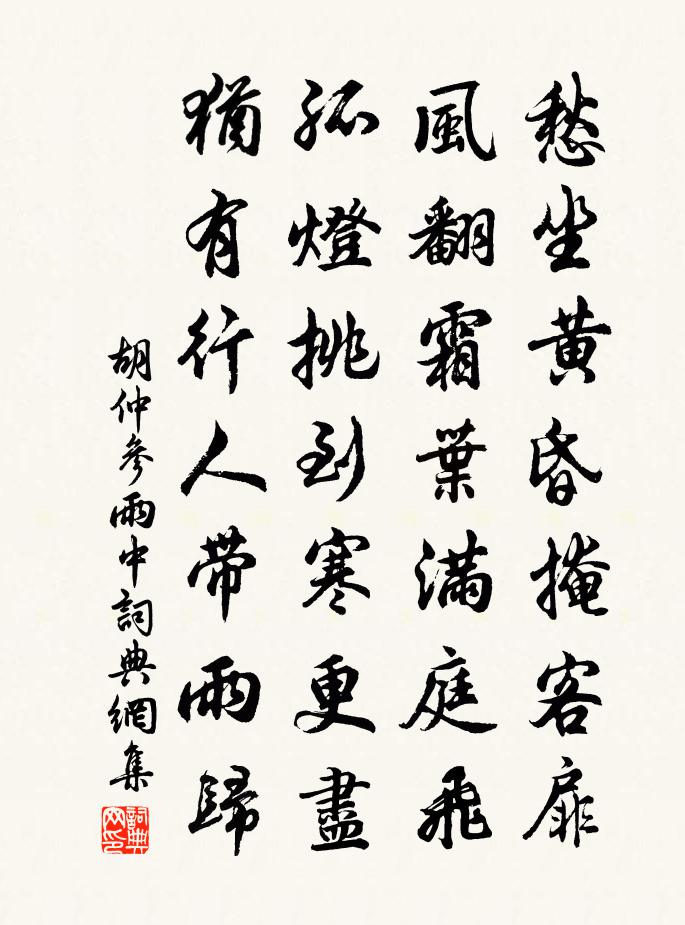 愁坐黃昏掩客扉
風翻霜葉滿庭飛
孤燈挑到寒更盡
猶有行人帶雨歸
胡仲參雨中詞典網集
詞典网印